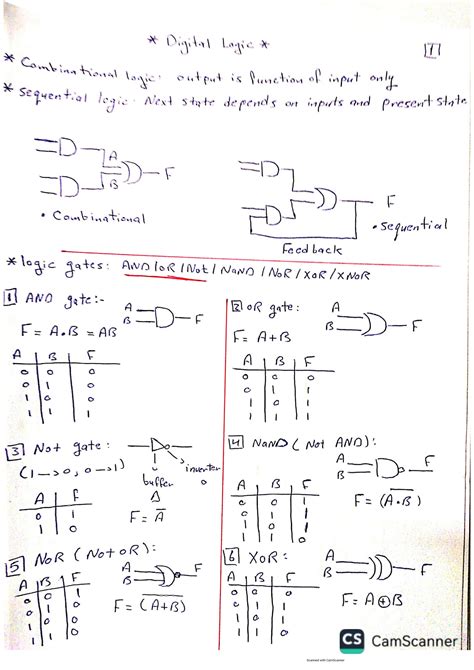 * Digital Logic *
1
* Combinational logic: output is function of input only
* Sequential logic: Next state depends on inputs and present state
A
B
F
• Combinational
F
• sequential
Feedback
* logic gates: AND / OR / Not / NAND / NOR / XOR / XNOR
1 AND gate:-
A
B
F
F = A.B = AB
A B F
0 0 0
0 1 0
1 0 0
1 1 1
2 OR gate:
A
B
F
F = A+B
A B F
0 0 0
0 1 1
1 0 1
1 1 1
3 Not gate:
(1→0, 0→1)
buffer
inverter
F = A̅
A F
0 1
1 0
4 NAND (Not AND):
A
B
F
F = (A̅.̅B̅)
A B F
0 0 1
0 1 1
1 0 1
1 1 0
5 NOR (Not OR):
A
B
F
F = (A̅+̅B̅)
A B F
0 0 1
0 1 0
1 0 0
1 1 0
6 XOR:
A
B
F
F = A⊕B
A B F
0 0 0
0 1 1
1 0 1
1 1 0
CS CamScanner
Scanned with CamScanner